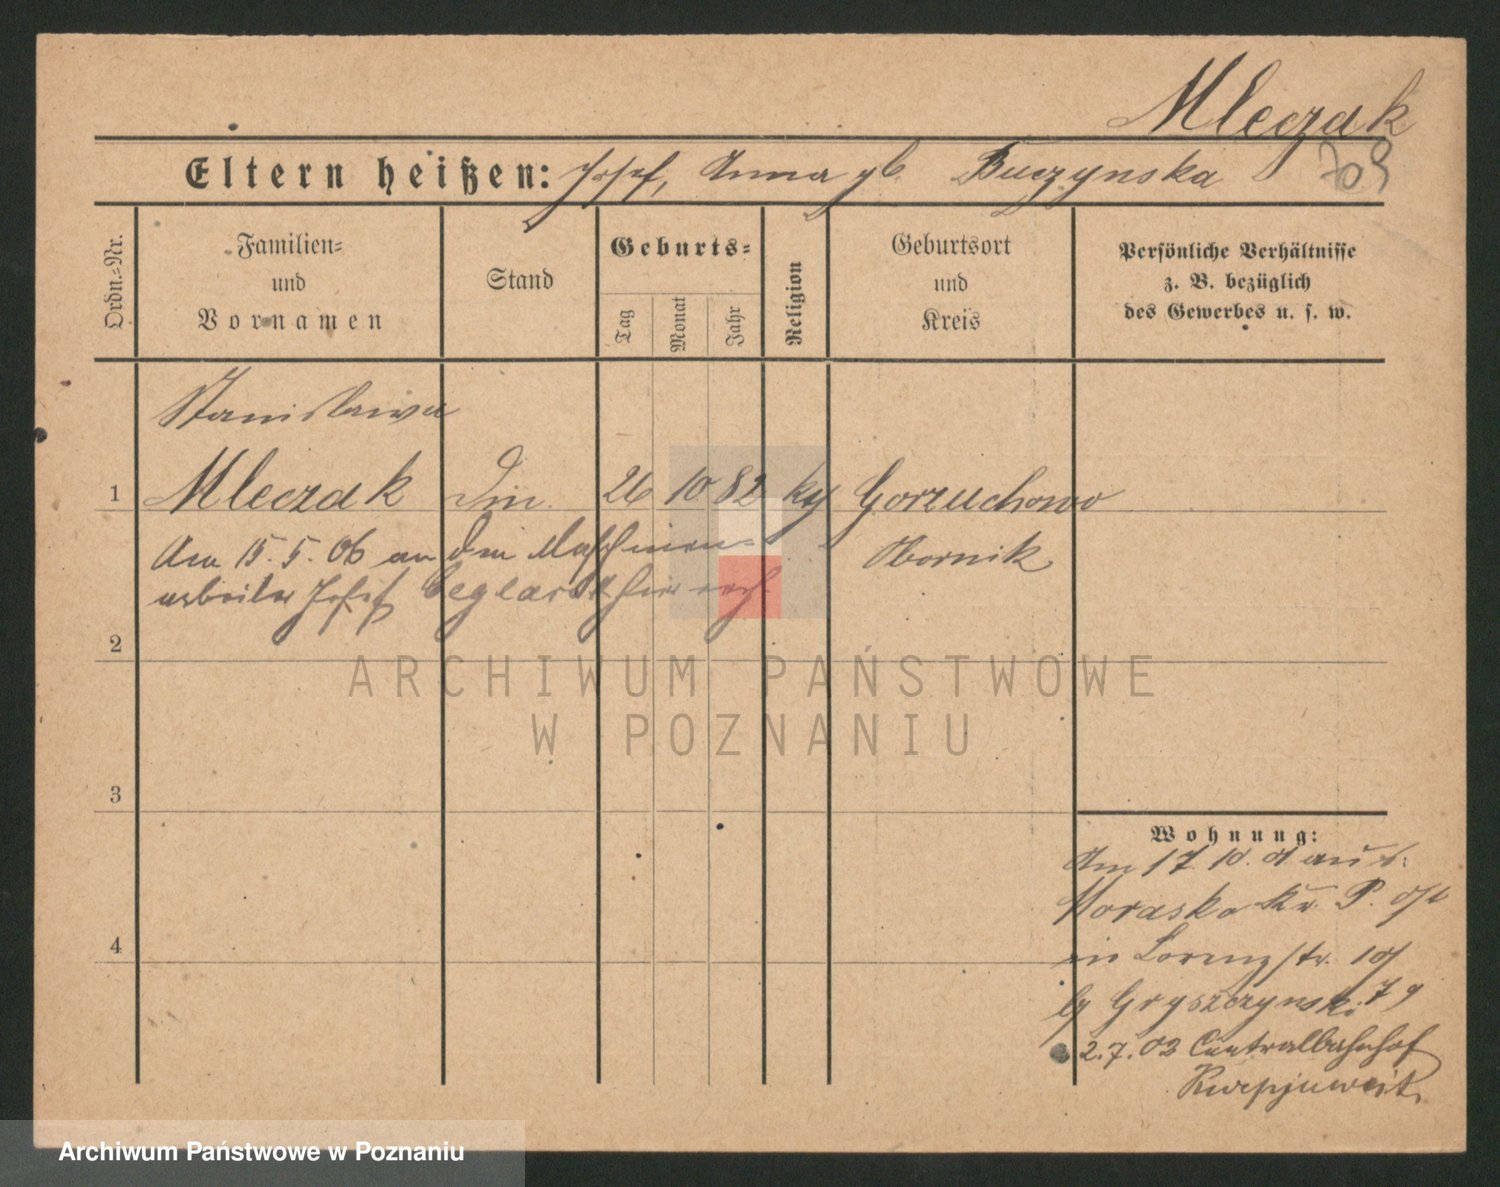 Mleczak
Eltern heißen: Josef, Anna gb. Buczynska
709
Ordn.=Nr.
Familien=
und
Vornamen
Stand
Geburts=
Tag
Monat
Jahr
Religion
Geburtsort
und
Kreis
Persönliche Verhältnisse
z. B. bezüglich
des Gewerbes u. s. w.
Stanislawa
1 Mleczak Din. 26 10 82 kth Gorzuchowo
Am 15. 5. 06 an den Maschinen=
Obornik
arbeiter Josef hier verh
2
ARCHIWUM PAŃSTWOWE
W POZNANIU
3
Wohnung:
Am 17. 10. 01 aus
Morasko Kr. P. Ost
in Lorenzstr. 10
4
b/ Gryszczynski 79
2.7.03 Centralbahnhof
Archiwum Państwowe w Poznaniu